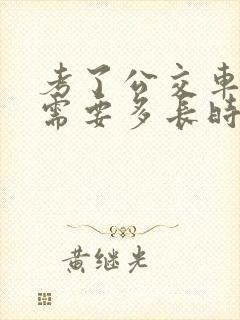 考了公交車
需要多長時
黃继光